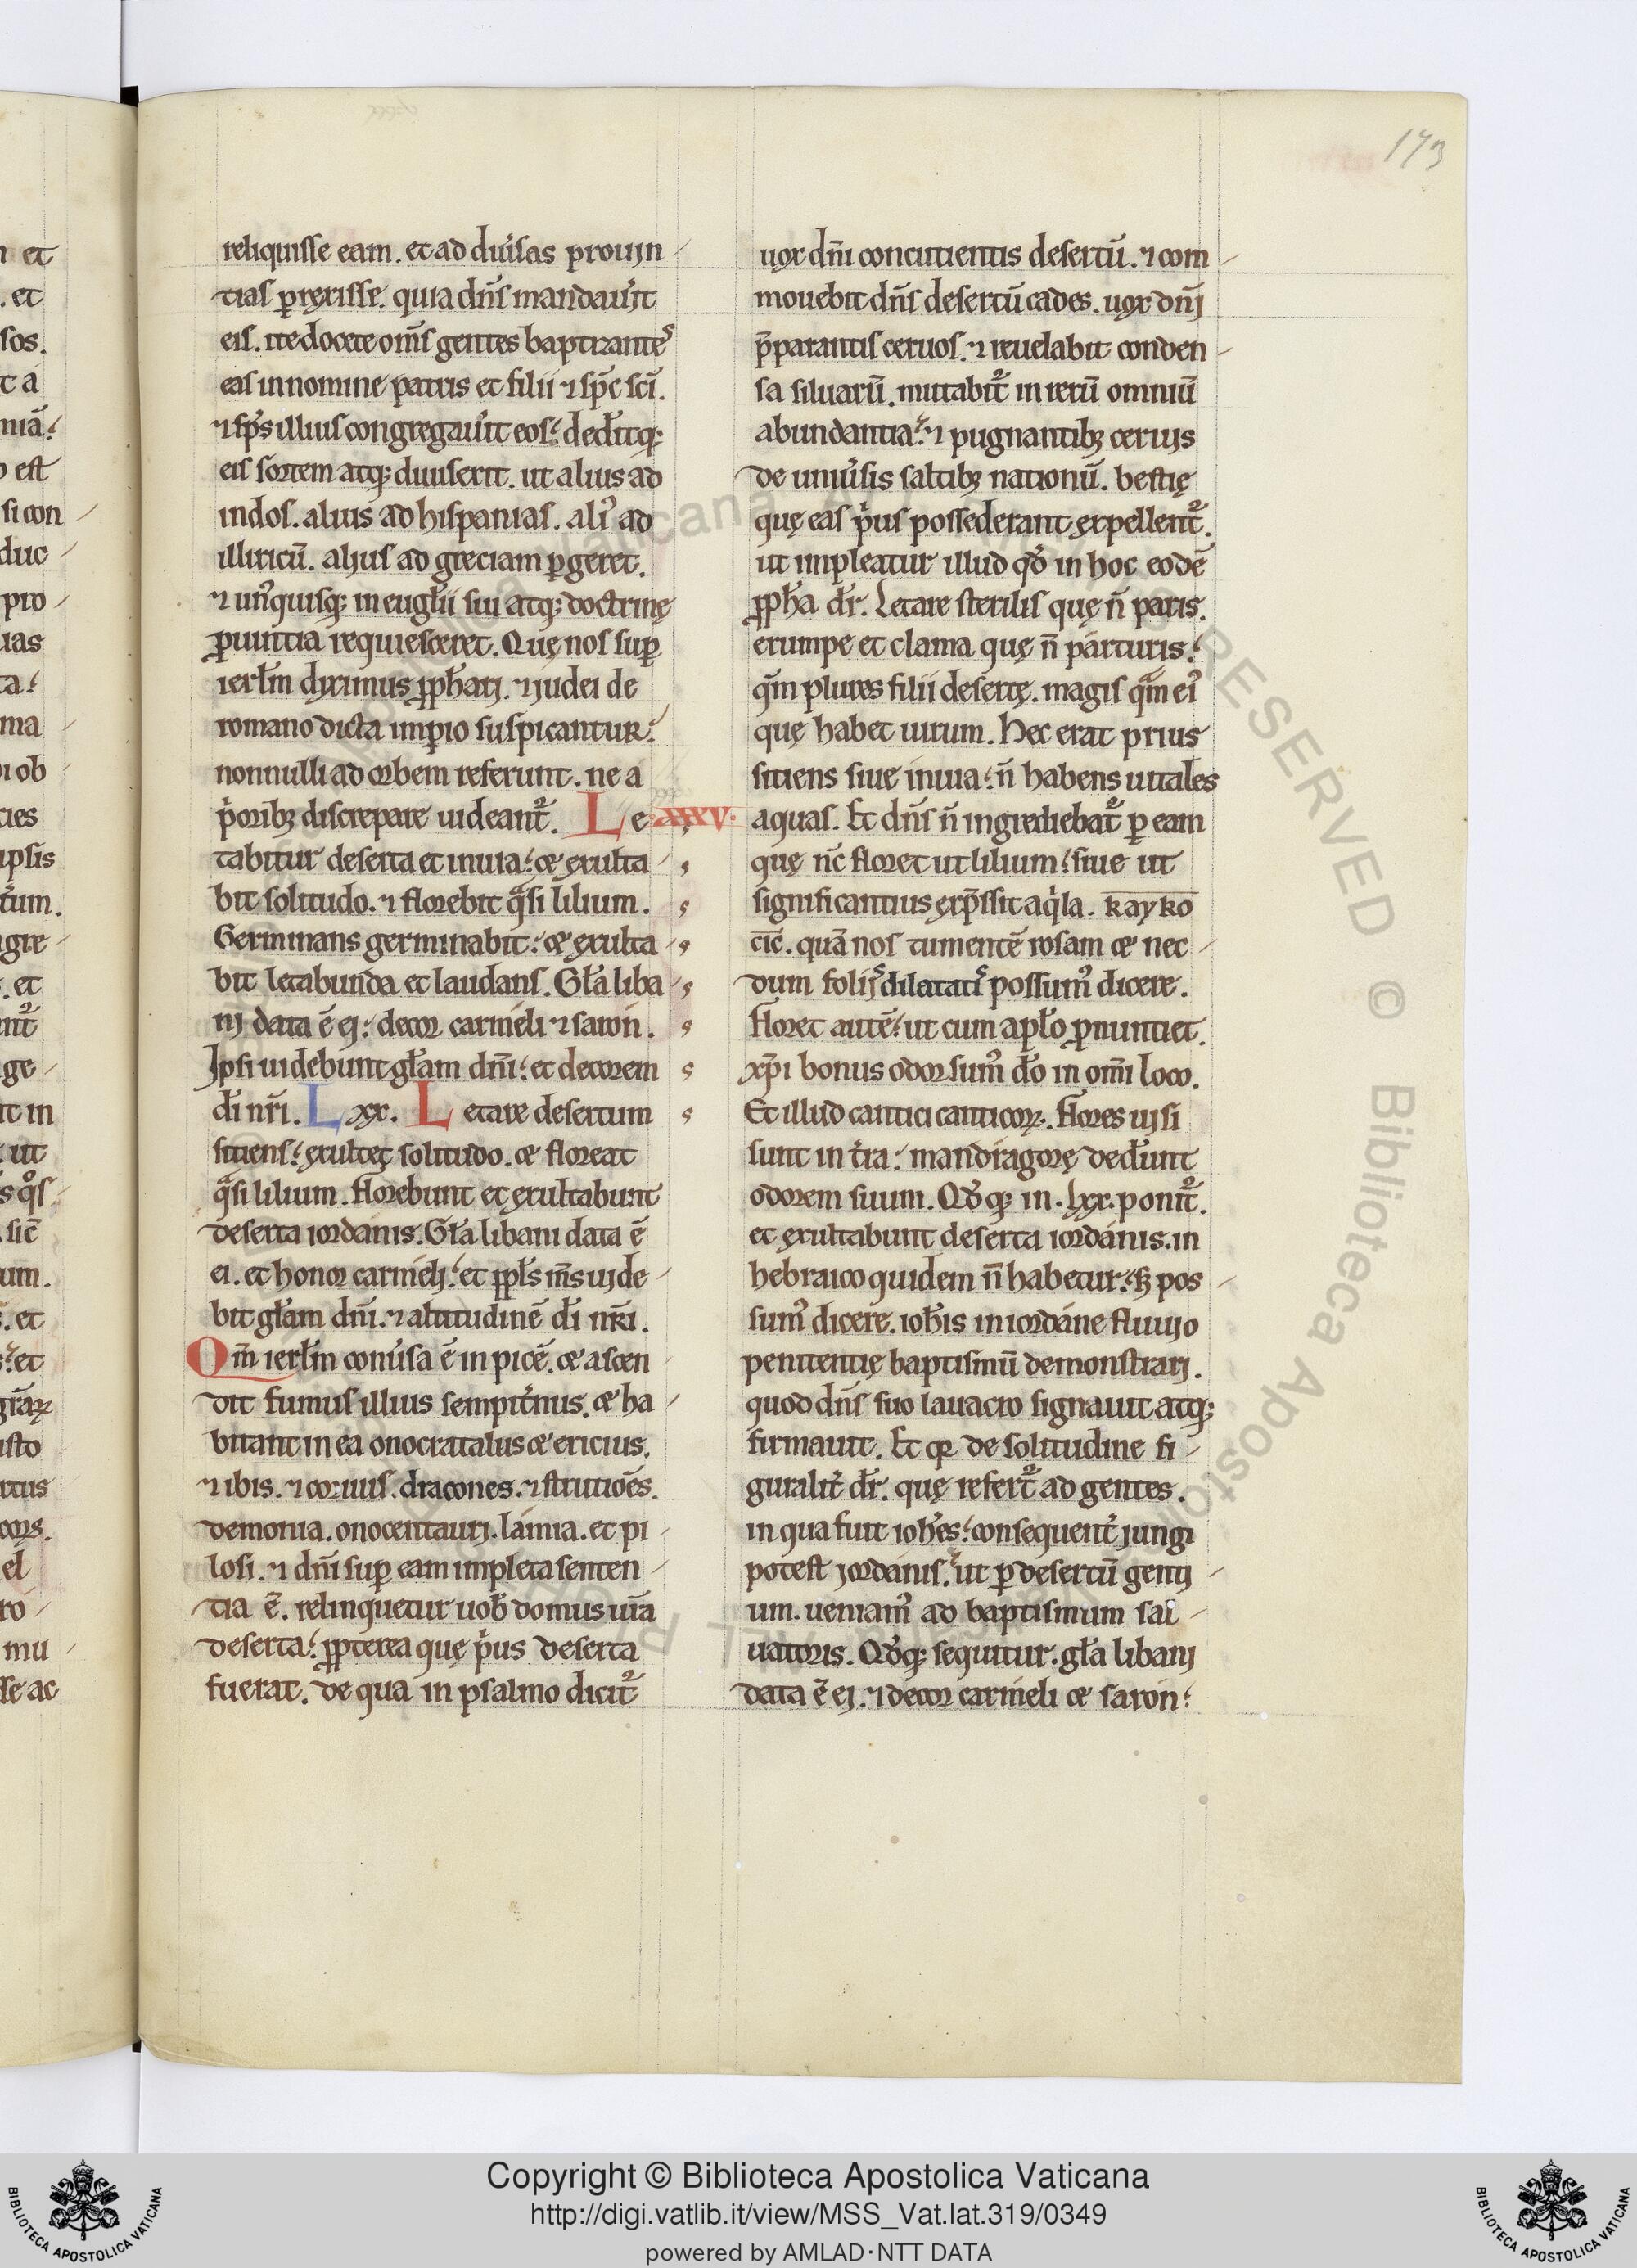 173
reliquisse eam. et ad duı̉sas prouın
tias ꝑrexisse. quia dn̄s mandau̓it
eis. ite docete om̄s gentes baptizantes
eas in nomine patris et filii ⁊ sp̄c sc̄i.
⁊ sp̄s illius congregau̓it eos. dedit̓q;
eis sortem atq; diuiserit. ut alius ad
indos. alius ad hispanias. aliꝰ ad
illiricū. alius ad greciam ꝑgeret.
⁊ un̓quisq; in eugl̄ii sui atq; doctrinę
ꝓuintia requiesceret. Quę nos suꝑ
ierl̄m diximus ꝓphari. ⁊ iudei de
romano dicta imꝑio suspicantur.
nonnulli ad orbem referunt. ne a
p̓orib; discrepare uideant᷑. Le xxxv.
tabitur deserta et inuia. & exulta
bit solitudo. ⁊ florebit qͣsi lilium.
Germinans germinabit. & exulta
bit letabunda et laudans. Gl̄a liba
ni data ē ei. decor carmeli ⁊ saron.
Ipsi uidebunt gl̄am dn̄i. et decorem
dī nr̄i. Lxx. Letare desertum
sitiens. exultet solitudo. & floreat
qͣsi lilium. florebunt et exultabunt
deserta iordanis. Gl̄a libani data ē
ei. et honor carmeli. et ppl̄s m̄s uide
bit gl̄am dn̄i. ⁊ altitudinē dī nr̄i.
Qm̄ ierl̄m conu̓sa ē in picē. & ascen
dit fumus illius sempit̓nus. & ha
bitant in ea onocratalus & ericius.
⁊ ibis. ⁊ coruus. dracones. ⁊ strutiōes.
demonia. onocentauri. lamia. et pi
losi. ⁊ dn̄i suꝑ eam impleta senten
tia ē. relinquetur uob̄ domus ur̄a
deserta. ꝓpterea quę p̓us deserta
fuerat. de qua in psalmo dicit᷑
uox dn̄i concutientis desertū. ⁊ com
mouebit dn̄s desertū cades. uox dn̄i
p̄parantis ceruos. ⁊ reuelabit conden
sa siluarū. mutabit᷑ in rerū omniū
abundantia. ⁊ pugnantib; ceruis
de uniu̓sis saltib; nationū. bestię
quę eas p̓us possederant expellent᷑.
ut impleatur illud qd̄ in hoc eodē
ꝓpħa dr̄. Letare sterilis quę n̄ paris.
erumpe et clama quę n̄ parturis.
qm̄ plures filii desertę. magis qͣm eiꝰ
quę habet uirum. Hec erat prius
sitiens siue inuia. n̄ habens uitales
aquas. Et dn̄s n̄ ingrediebat᷑ ꝑ eam
quę nc̄ floret ut lilium. siue ut
significantius exp̄ssit aq̓la. kayko
cic̄. quā nos tumentē rosam & nec
dum foliis dilatatis possumꝰ dicere.
floret autē. ut cum apl̄o ꝓnuntiet.
xp̄i bonus odor sumꝰ dō in om̄i loco.
Et illud cantici canticoꝝ. flores uisi
sunt in t̓ra. mandragorę ded̓unt
odorem suum. Qd̄q; in. lxx. ponit᷑.
et exultabunt deserta iordanis. in
hebraico quidem n̄ habetur. sꝫ pos
sumꝰ dicere. ioħis in iordane fluuio
penitentię baptismū demonstrari.
quod dn̄s suo lauacro signauit atq;
firmauit. Et qꝛ de solitudine fi
guralit̓ dr̄. quę refert᷑ ad gentes.
in qua fuit ioħes. consequent̓ iungi
potest iordanis. ut ꝑ desertū genti
um. ueniamꝰ ad baptismum sal
uatoris. Qd̄q; sequitur. gl̄a libani
data ē ei. ⁊ decor carmeli & saron.
Copyright © Biblioteca Apostolica Vaticana
http://digi.vatlib.it/view/MSS_Vat.lat.319/0349
powered by AMLAD·NTT DATA
BIBLIOTECA APOSTOLICA VATICANA
BIBLIOTECA APOSTOLICA VATICANA